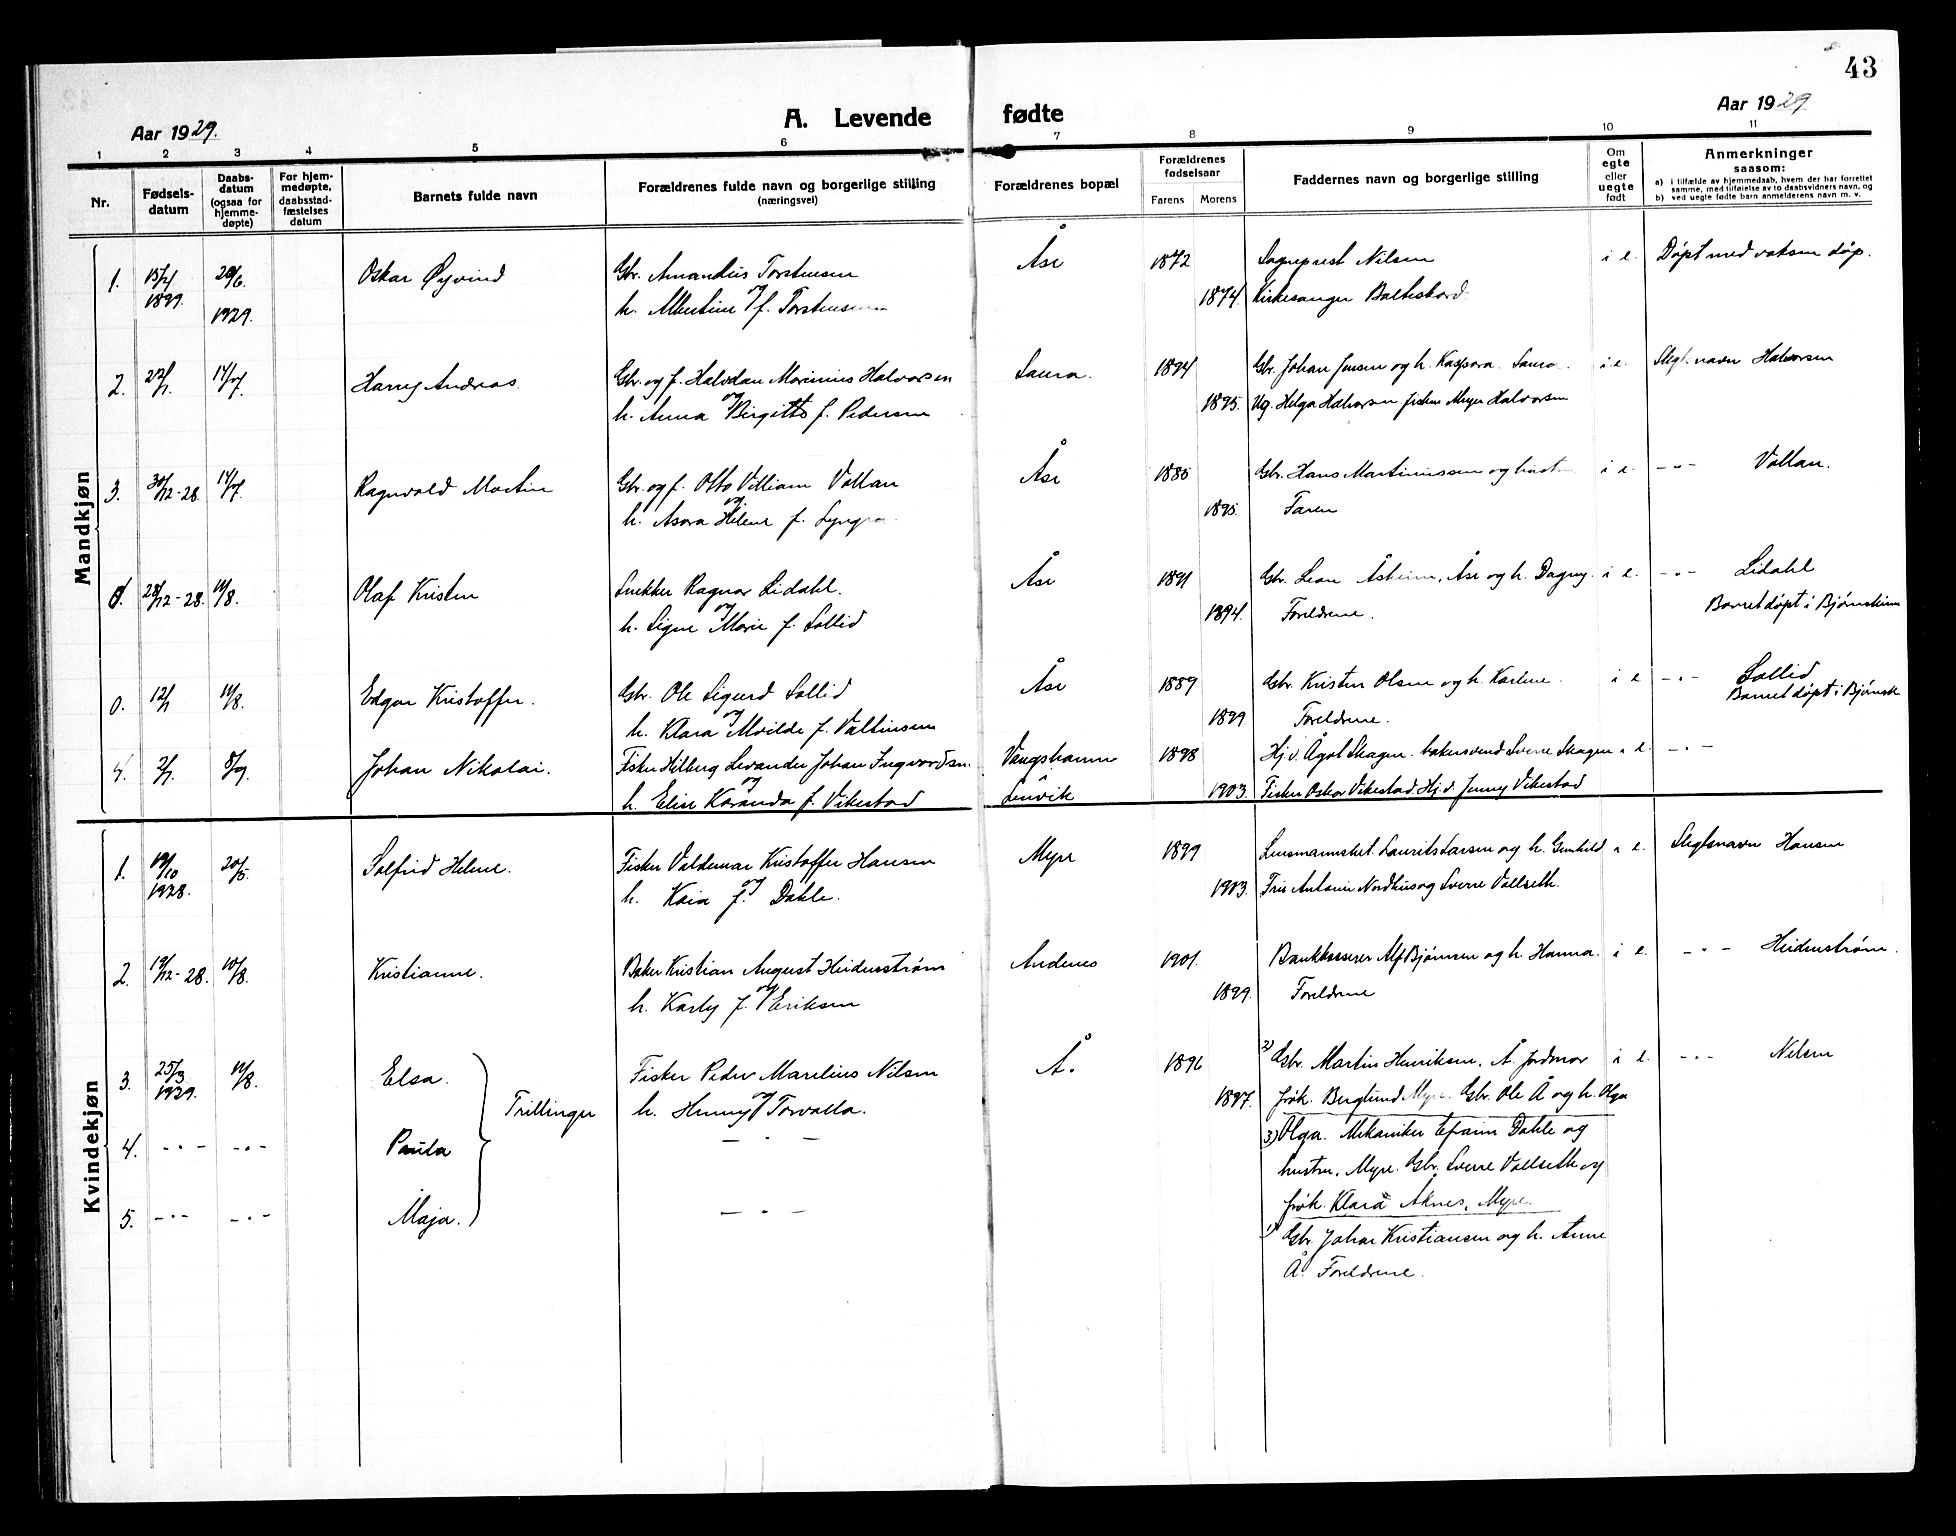 43
Aar 1929.
A. Levende fødte
Aar 1929
1 2 3 4 5 6 7 8 9 10 11
Nr.
Fødsels-
datum
Daabs-
datum
(ogsaa for
hjemme-
døpte)
For hjem-
medøpte,
daabsstad-
fæstelses
datum
Barnets fulde navn
Forældrenes fulde navn og borgerlige stilling
(næringsvei)
Forældrenes bopæl
Forældrenes
fødselsaar
Farens Morens
Faddernes navn og borgerlige stilling
Om
egte
eller
uegte
født
Anmerkninger
saasom:
a) i tilfælde av hjemmedaab, hvem der har forrettet
samme, med tilføielse av to daabsvidners navn, og
b) ved uegte fødte barn anmelderens navn m. v.
Mandkjøn
1. 15/4 20/6. Oskar Øyvind Gbr. Amandus Torstensen Åse 1872 Sogneprest Nilsen i e. Døpt med voksen dåp.
1899. 1929. og
h. Albertine f. Torstensen 1874. Kirkesanger Balteskard.
2. 22/1. 14/7. Harry Andreas. Gbr. og f. Halvdan Marinius Halvorsen Saura. 1894 Gbr. Johan Jensen og h. Kaspara. Saura. i e. Slegt. navn Halvorsen
og
h. Anna Birgitte f. Pedersen 1895. Ug. Helga Halvorsen fisker Meyer Halvorsen
3. 30/12-28. 14/7. Ragnvald Martin Gbr. og f. Otto Villiam Vollan Åse 1885 Gbr. Hans Martinussen og hustr i e. -"- Vollan.
og
h. Asora Helene f. Lyngra. 1895. Faren
0. 28/12-28. 11/8. Olaf Kristen Snekker Ragnar Lidahl. Åse 1891 Gbr. Leon Åsheim, Åse og h. Dagny. i e. -"- Lidahl
og
h. Signe Marie f. Sollid 1894. Foreldrene. Barnet døpt i Bjørnskinn
0. 12/1 11/8. Edgar Kristoffer. Gbr. Ole Sigurd Sollid Åse 1889 Gbr. Kristen Olsen og h. Karlene. i e -"- Sollid
og Barnet døpt i Bjørnsk
h. Klara Mvilde f. Valtinsen 1899 Foreldrene.
4. 2/7. 8/9. Johan Nikolai. Fisker Hilberg Levander Johan Ingvardsen. Vangshamn 1898 Hj.v. Ågot Skagen. bakersvend Sverre Skagen " e. -"-
og
h. Elise Karanda f. Vikestad Lenvik 1903. Fisker Oskar Vikestad. Hj.v. Jenny Vikestad
Kvindekjøn
1. 19/10 20/5. Solfrid Helene. Fisker Valdemar Kristoffer Hansen Myre 1899 Lensmannsbet. Laurits Larsen og h. Gunhild " e. Slegtsnavn Hansen
1928. og
h. Kaia f. Dahle. 1903. Frk Antonie Nordhus og Sverre Vollseth.
2. 19/12-28. 10/8. Kristianne. Baker Kristian August Heidenstrøm Andenes 1901. Bankkasserer Alf Bjørnsen og h. Hanna. i e. -"- Heidenstrøm.
og
h. Karly f. Eriksen 1899. Foreldrene
3. 25/3 11/8. Elsa. Fisker Peder Marelius Nilsen Å. 1896 2) Gbr. Martin Henriksen, Å. Jordmor i e. -"- Nilsen
1929. og
Trillinger h. Henny Torvalla. 1897. frøk. Berglund Myre. Gbr. Ole Å og h. Olga
4. -"- -"- Paula -"- 3) Olga. Mekaniker Efraim Dahle og
hustru, Myre. Gbr. Sverre Vollseth og
5. -"- -"- Maja. -"- frøk. Klara Åknes, Myre.
1) Gbr. Johan Kristiansen og h. Anne
Å. Foreldrene.